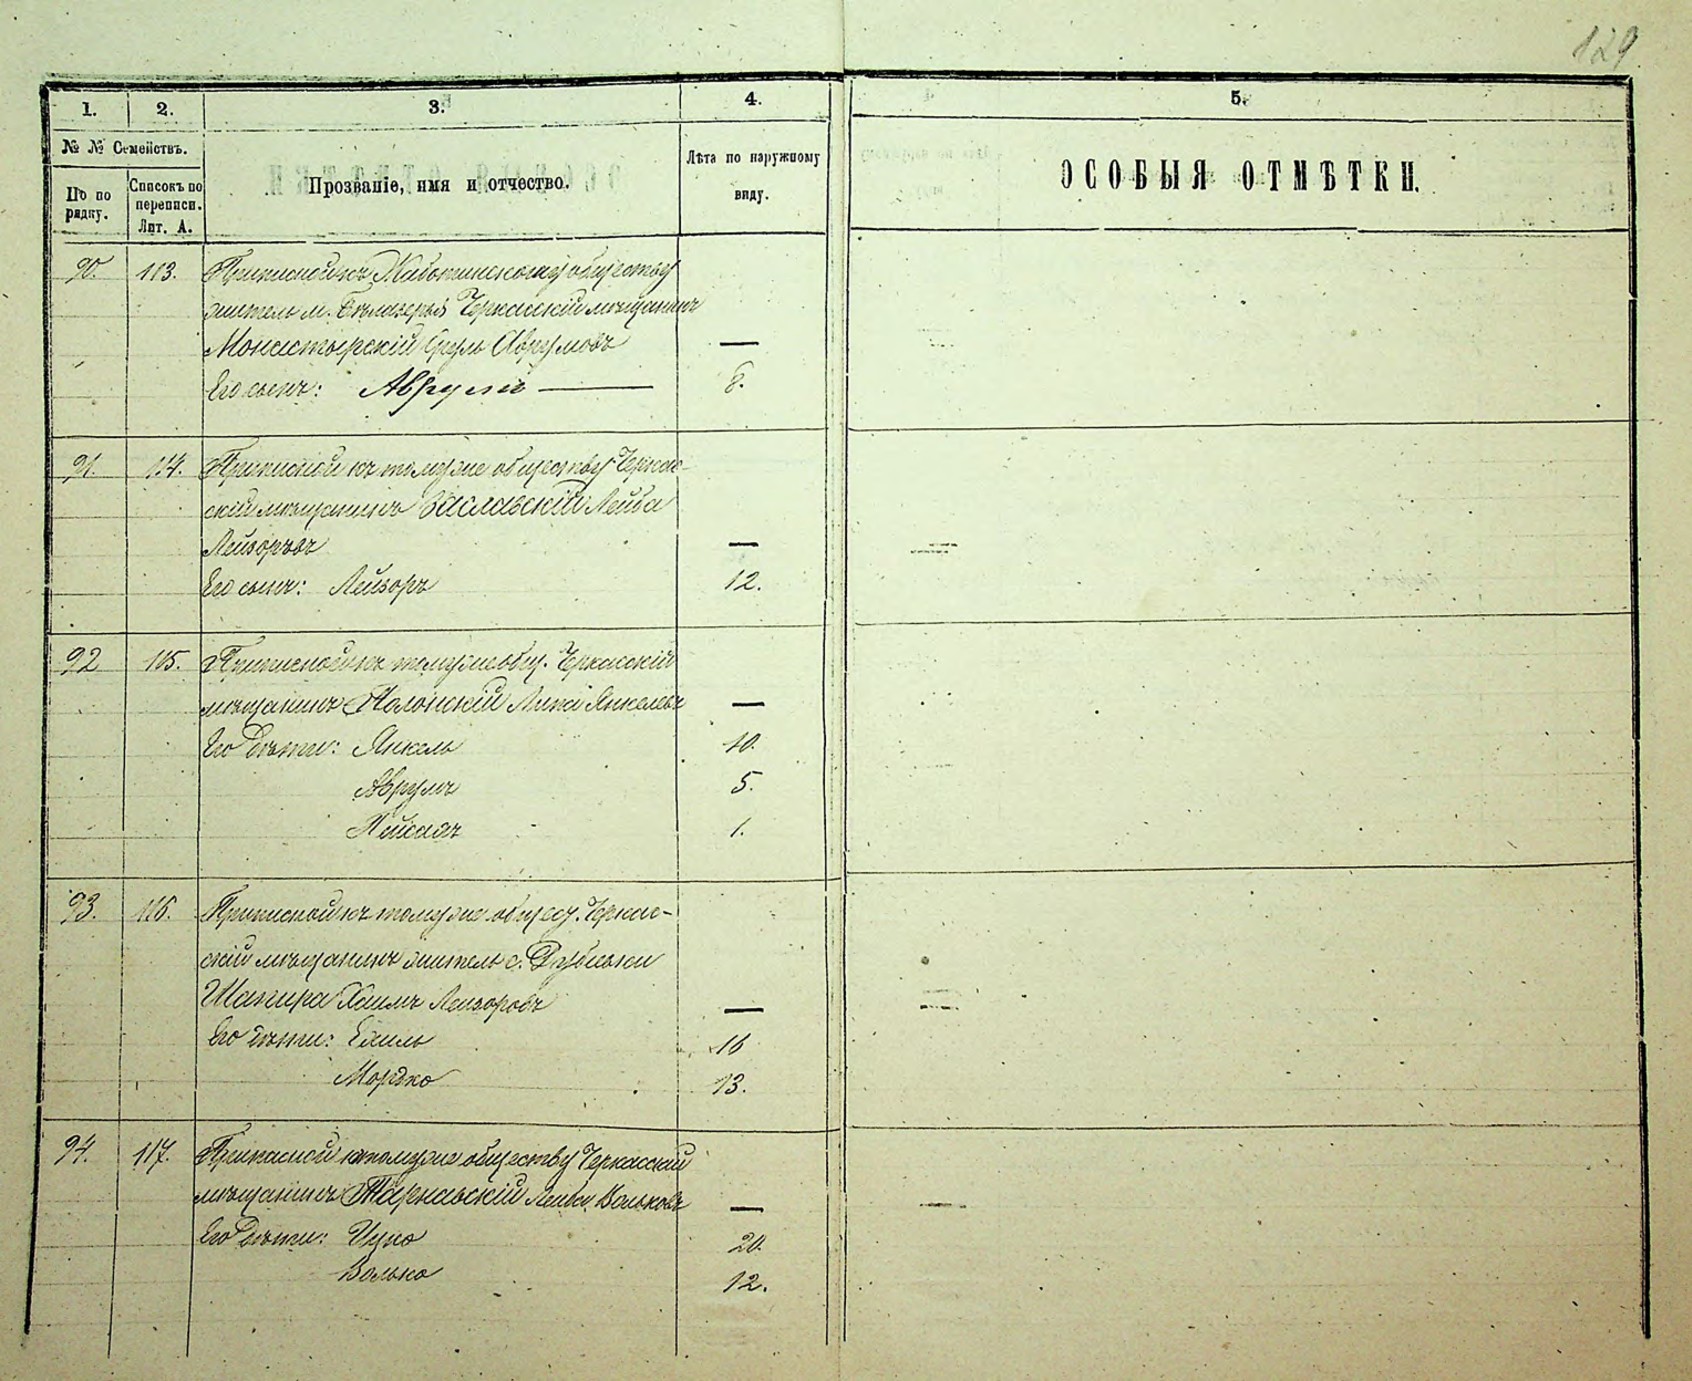 129
1.
2.
3.
4.
5.
№ № Семействъ.
По по рядку.
Списокъ по переписи. Лит. А.
Прозваніе, имя и отчество.
Лѣта по наружному виду.
ОСОБЫЯ ОТМѢТКИ.
90. 113. Приписной къ Жаботинскому обществу
житель м. Бѣлозерья Черкасскій мѣщанинъ
Монастырскій Сруль Аврумовъ —
Его сынъ: Аврумъ — 8.
91. 114. Приписной къ томуже обществу Черкас-
скій мѣщанинъ Заславскій Лейба
Лейзоровъ —
Его сынъ: Лейзоръ 12.
92 115. Приписной къ томуже общ. Черкасскій
мѣщанинъ Полонскій Янкелевъ —
Его дѣти: Янкель 10.
Аврумъ 5.
Пейсахъ 1.
93. 116. Приписной къ томуже общес. Черкас-
скій мѣщанинъ житель с.
Шапира Хаимъ Лейзоровъ —
Его дѣти: 16
Мордко 13.
94. 117. Приписной къ томуже обществу Черкасскій
мѣщанинъ Лейба Вольковъ —
Его дѣти: Ицко 20.
Волько 12.